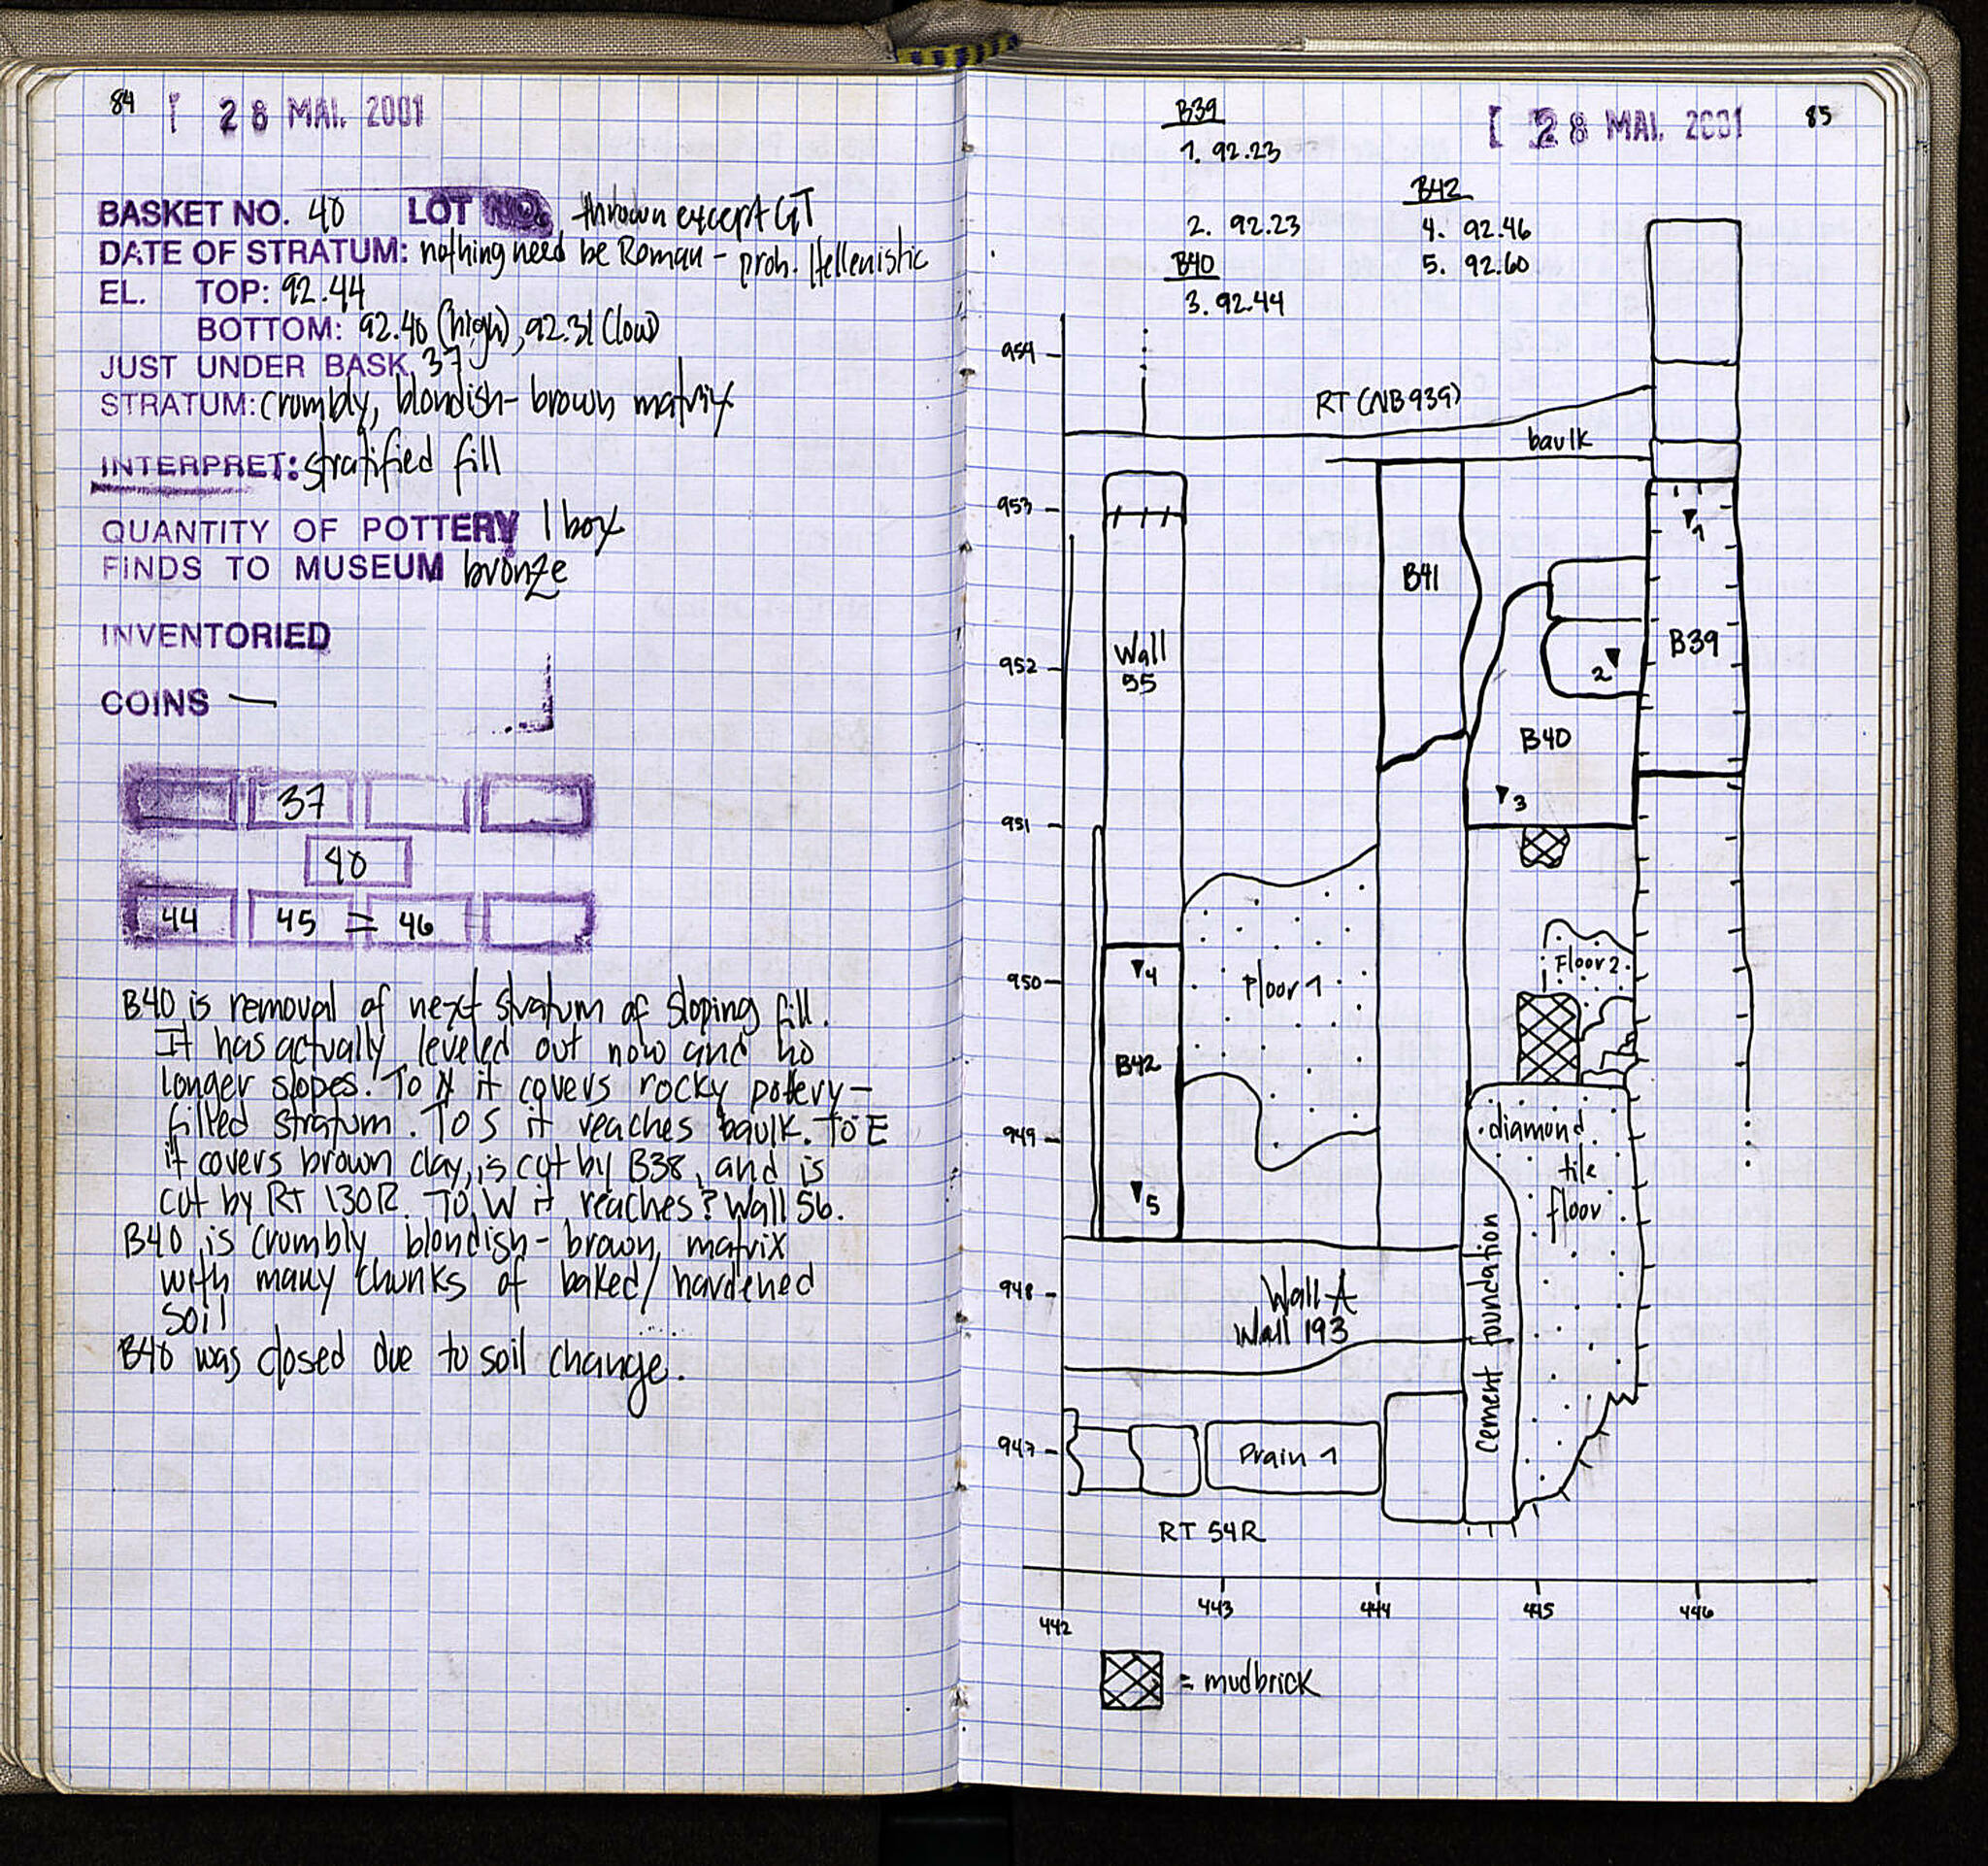 84
[ 28 MAI. 2001
BASKET NO. 40 LOT NO. thrown except GT
DATE OF STRATUM: nothing need be Roman - prob. Hellenistic
EL. TOP: 92.44
BOTTOM: 92.40 (high), 92.31 (low)
JUST UNDER BASK. 37
STRATUM: crumbly, blondish-brown matrix
INTERPRET: stratified fill
QUANTITY OF POTTERY 1 box
FINDS TO MUSEUM bronze
INVENTORIED
COINS —
37
40
44 45 = 46
B40 is removal of next stratum of sloping fill.
It has actually leveled out now and no
longer slopes. To N it covers rocky pottery-
filled stratum. To S it reaches baulk. To E
it covers brown clay, is cut by B38, and is
cut by RT 130R. To W it reaches? Wall 56.
B40 is crumbly, blondish-brown, matrix
with many chunks of baked/hardened
soil
B40 was closed due to soil change.
[ 28 MAI. 2001
85
B39
1. 92.23
2. 92.23
B40
3. 92.44
B42
4. 92.46
5. 92.60
954
RT (NB 939)
baulk
953
1
B41
Wall
55
952
B39
2
B40
3
951
Floor 2
950
4
Floor 1
B42
diamond
tile
floor
949
5
Cement foundation
948
Wall A
Wall 193
947
Drain 1
RT 54R
442
443
444
445
446
= mudbrick